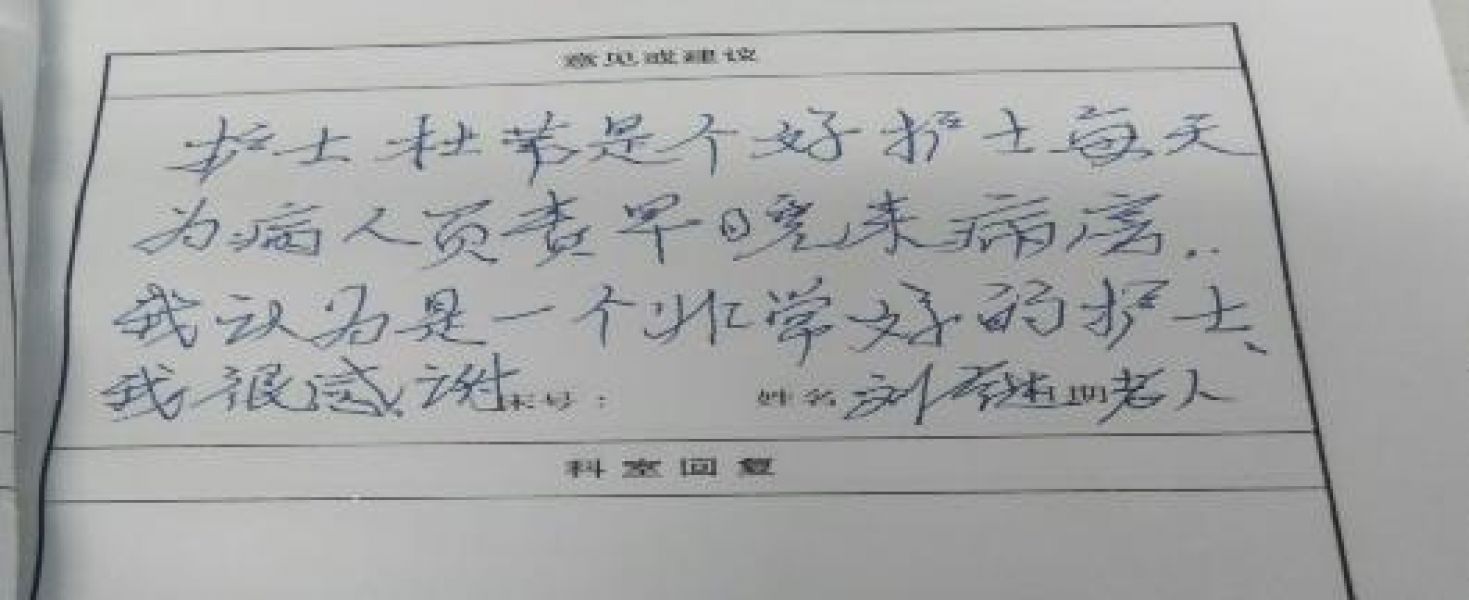 意见或建议
护士杜芾是个好护士每天
为病人员责早晚来病房..
我认为是一个非常好的护士、
我很感谢 床号： 姓名 刘 日期 老人
科室回复